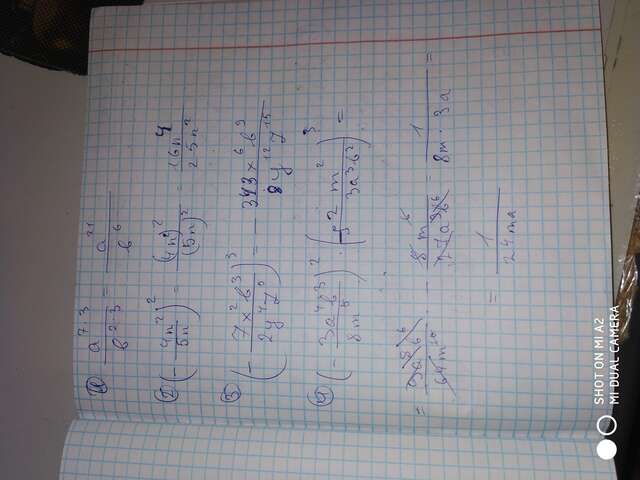 1) a^{7·3} / b^{2·3} = a^{21} / b^{6}
2) (- 4n^2 / 5n)^2 = (4n^2)^2 / (5n)^2 = 16n^4 / 25n^2
3) (- 7x^2 b^3 / 2y^4 z^5)^3 = - 343x^6 b^9 / 8y^{12} z^{15}
4) (- 3a^4 b^3 / 8m^5)^2 · (- 2m^2 / 3a^3 b^2)^3 =
= 9a^8 b^6 / 64m^{10} · 8m^6 / 27a^9 b^6 = 1 / 8m · 3a =
= 1 / 24ma
SHOT ON MI A2
MI DUAL CAMERA